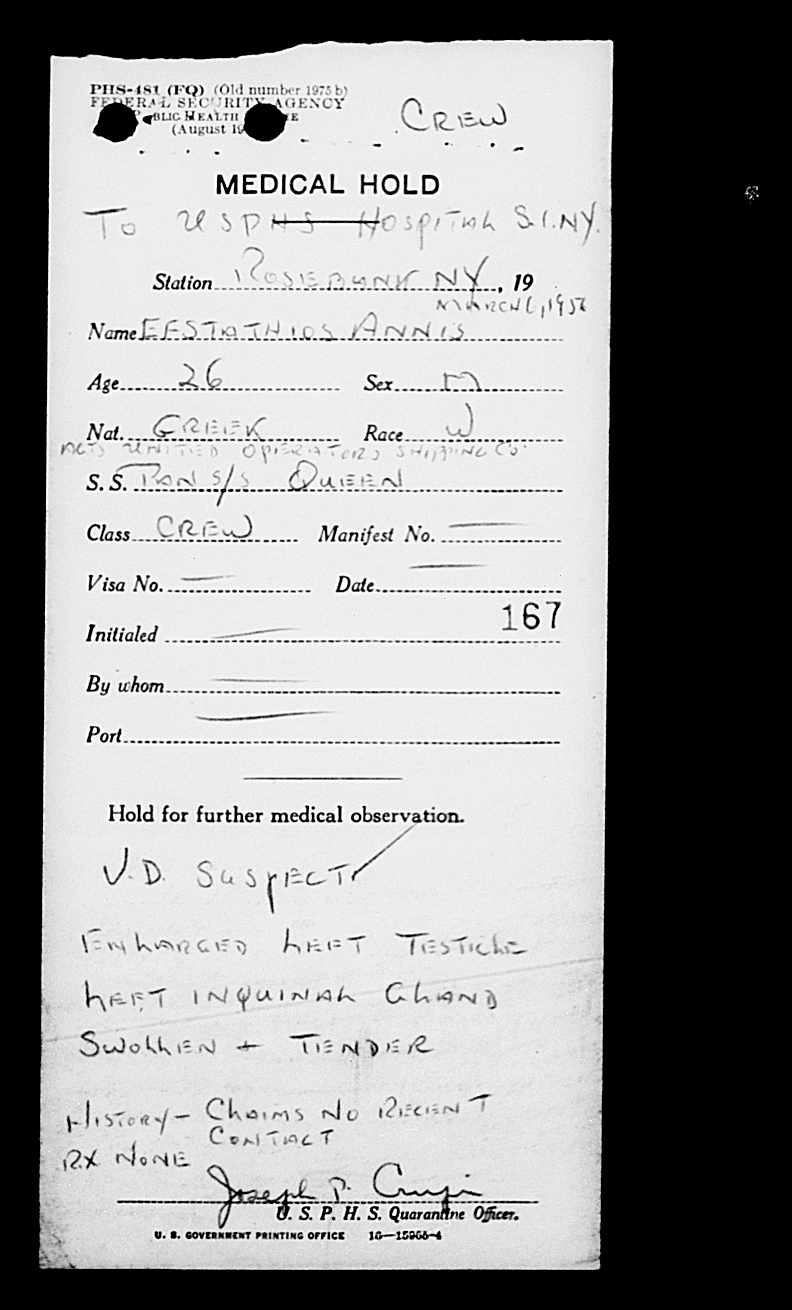 PHS-481 (FQ) (Old number 1975 b)
FEDERAL SECURITY AGENCY
BLIC HEALTH
(August 19
CREW
MEDICAL HOLD
To USPHS HOSPITAL S.I.NY.
Station ROSEBANK NY, 19
MARCH 6, 1956
Name EFSTATHIOS ANNIS
Age 26 Sex M
Nat. GREEK Race W
AGTS UNITED OPERATORS SHIPPING CO
S. S. PAN S/S QUEEN
Class CREW Manifest No. —
Visa No. — Date —
167
Initialed —
By whom —
Port —
Hold for further medical observation.
V.D. SUSPECT
ENLARGED LEFT TESTICLE
LEFT INQUINAL GLAND
SWOLLEN + TENDER
HISTORY - CLAIMS NO RECENT
CONTACT
RX NONE
Joseph P.
U. S. P. H. S. Quarantine Officer.
U. S. GOVERNMENT PRINTING OFFICE 16—15966-4